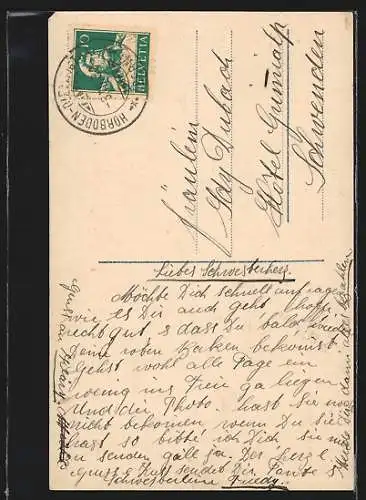 10
HELVETIA
HORBODEN-DIEMTIGEN
Fräulein
Dubach
Hôtel Grimialp
Schwenden
Liebes Schwesterherz.
Möchte Dich schnell anfragen
wie es Dir auch geht hoffe
recht gut & dass Du bald wieder
Deine roten Backen bekommst
Gehst wohl alle Tage ein
wenig ins Freie ga liegen
Und die Photo. hast Sie noch
nicht bekommen wenn Du Sie
hast so bitte ich Dich sie mir
zu senden gäll ja. Der
Gruss & Kuss sendet Dir Tante &
Schwesterlein Friedy.
Gruss an